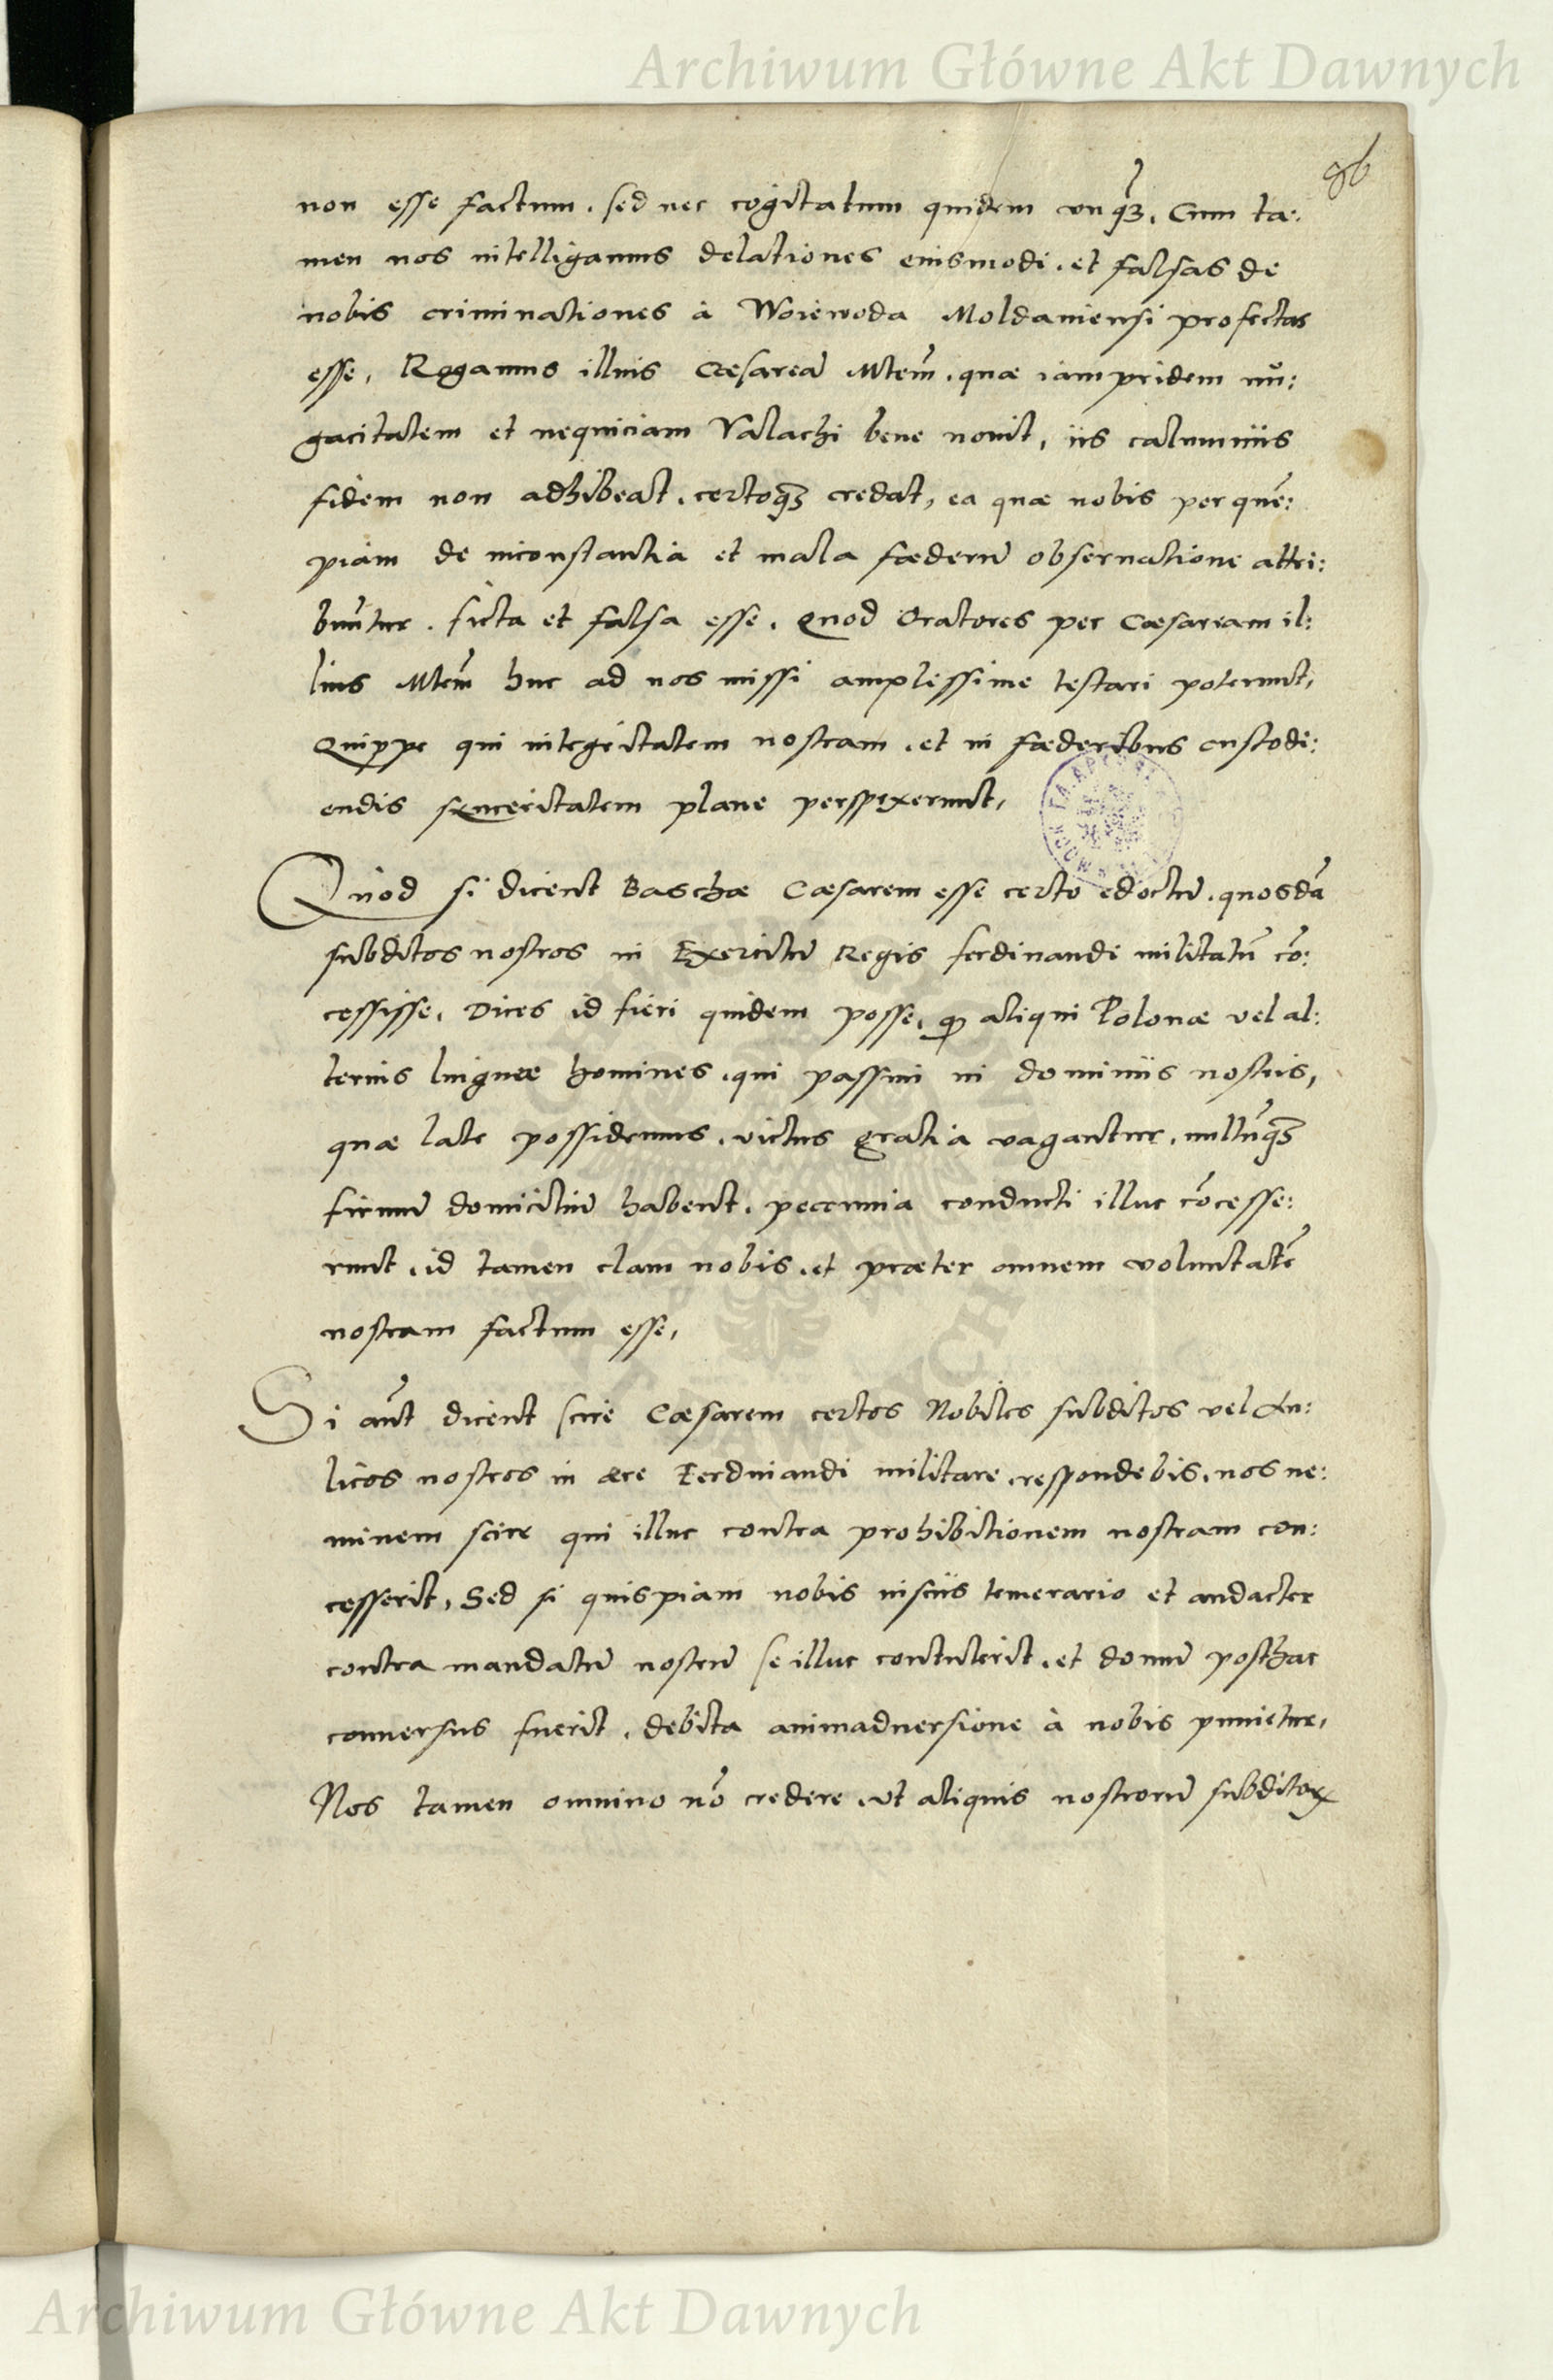 Archiwum Główne Akt Dawnych
86
non esse factum. sed nec cogitatum quidem vnq̃3. Cum ta:
men nos intelligamus delationes eiusmodi. et falsas de
nobis criminationes à Woiewoda Moldauiensi profectas
esse, Rogamus illius Cæsareã Mtem̃. quæ iampridem nu:
gacitatem et nequiciam Valachi bene nouit, iis calumniis
fidem non adhibeat. certoq3 credat, ea quæ nobis per quẽ:
piam de inconstantia et mala fœderũ obseruatione attri:
buũtur. ficta et falsa esse. Quod Oratores per Cæsaream il:
lius Mtem̃ huc ad nos missi amplissime testari poterunt,
Quippe qui integritatem nostram. et in fœderibus custodi:
endis synceritatem plane perspexerunt,
Quod si dicent Baschæ Cæsarem esse certo edoctũ. quosdã
subditos nostros in Exercitũ Regis Ferdinandi militatũ cõ:
cessisse, Dices id fieri quidem posse, ꝙ aliqui Polonæ vel al:
terius linguæ homines. qui passim in dominiis nostris,
quæ late possidemus. victus gratia vagantur. nullũq3
firmũ domicilũ habent. pecunia conducti illuc cõcesse:
runt. id tamen clam nobis. et præter omnem voluntatẽ
nostram factum esse,
Si aũt dicent scire Cæsarem certos Nobiles subditos vel Au:
licos nostros in ære Ferdinandi militare. respondebis. nos ne:
minem scire qui illuc contra prohibitionem nostram con:
cesserit, Sed si quispiam nobis insciis temerario et audacter
contra mandatũ nostrũ se illuc contulerit. et domũ posthac
conuersus fuerit. debita animaduersione à nobis punietur,
Nos tamen omnino nõ credere. vt aliquis nostrorũ subditoꝝ
Archiwum Główne Akt Dawnych